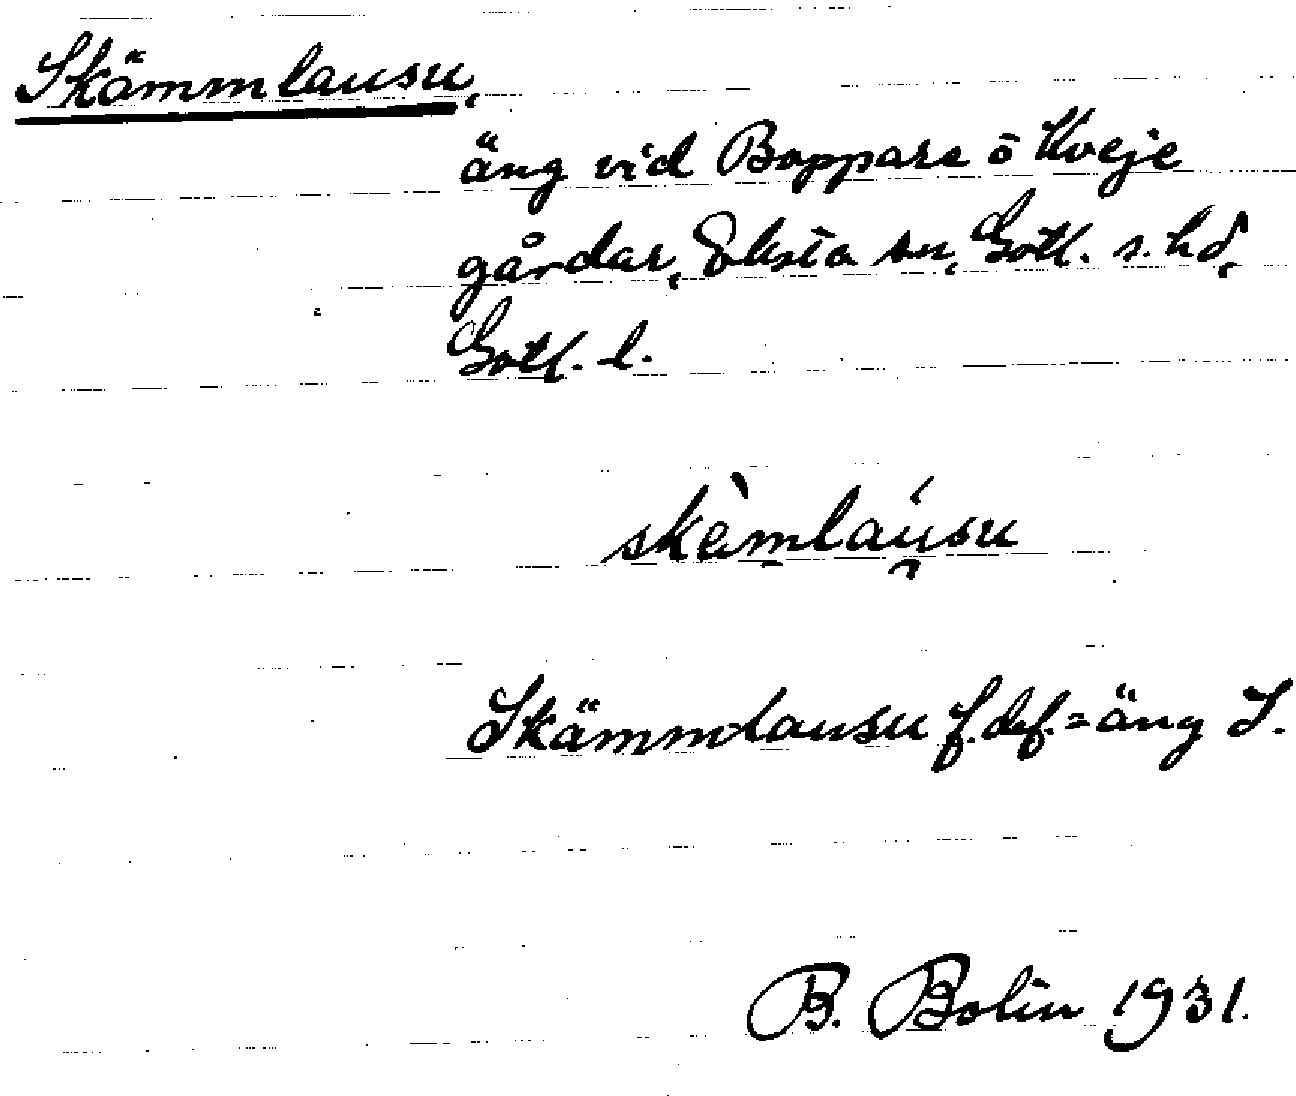 Skämmlausu,
äng vid Boppare o Kveje
gårdar, Eksta sn, Gotl. s. hd,
Gotl. l.
skèmlaúsu
Skämmlausu f. def. = äng S.
B. Bolin 1931.